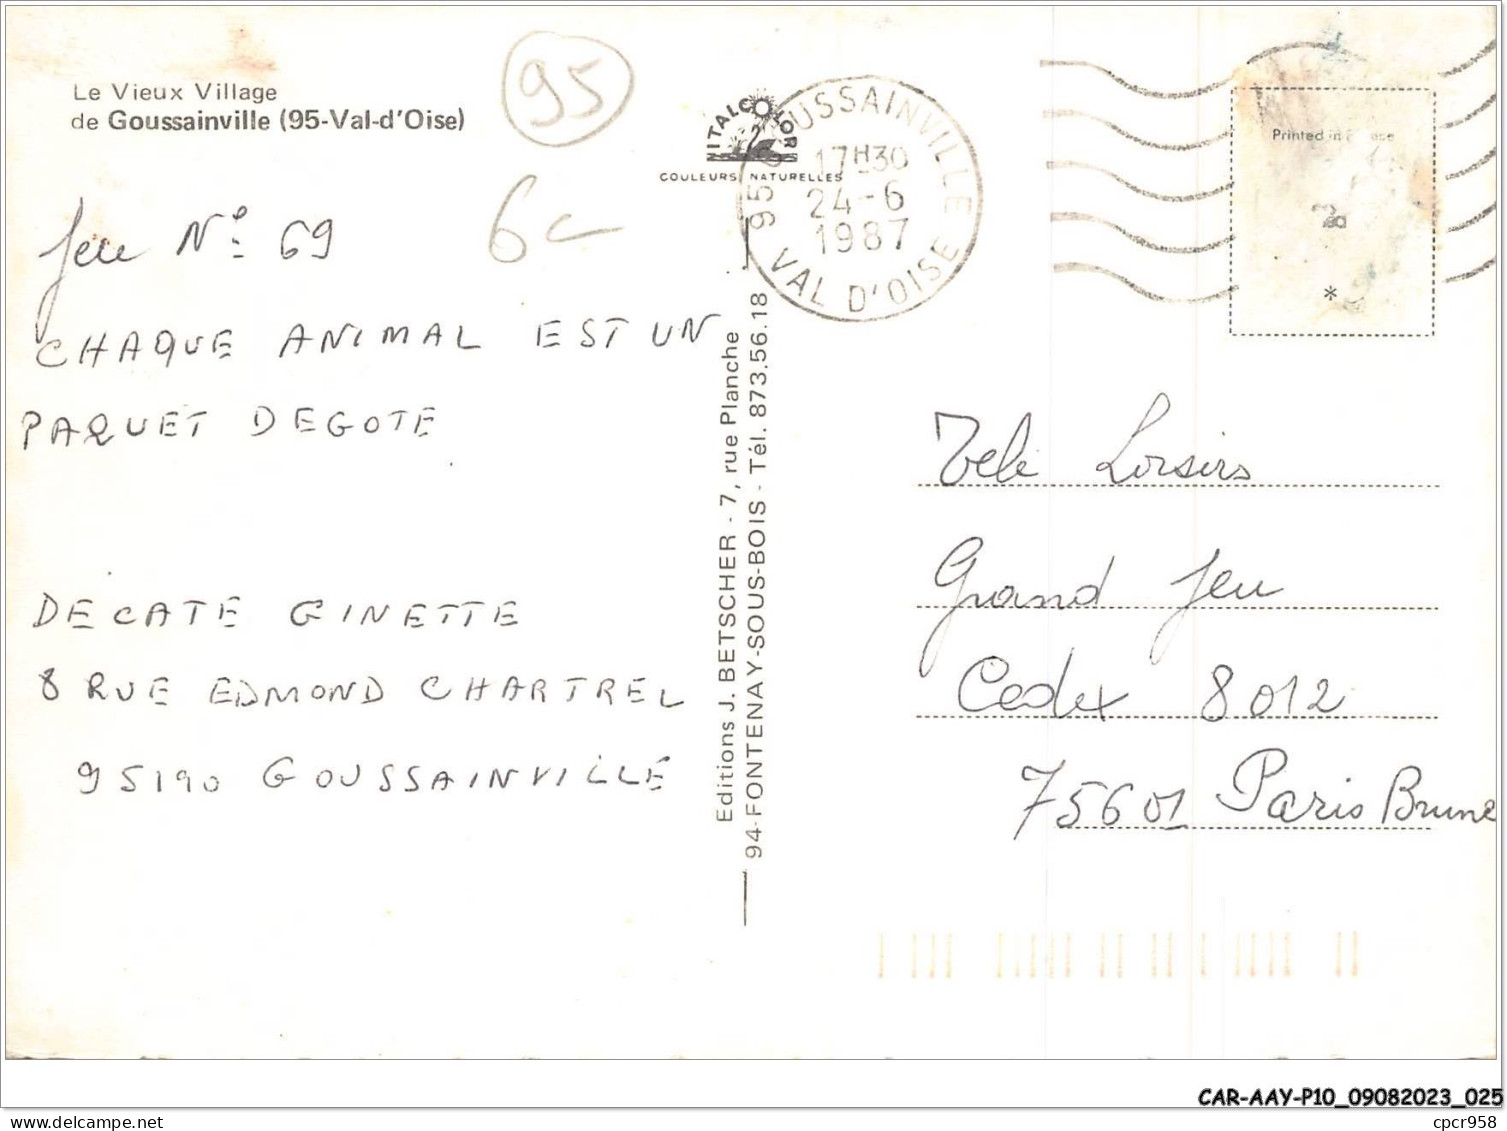 Le Vieux Village
de Goussainville (95-Val-d'Oise)
95
6
Jeu N° 69
CHAQUE ANIMAL EST UN
PAQUET DEGOTE
DECATE GINETTE
8 RUE EDMOND CHARTREL
95190 GOUSSAINVILLE
NITALCOLOR
COULEURS NATURELLES
Editions J. BETSCHER - 7, rue Planche
94-FONTENAY-SOUS-BOIS - Tél. 873.56.18
95 GOUSSAINVILLE
17H30
24-6
1987
VAL D'OISE
Printed in
*
Tele Loisirs
Grand Jeu
Cedex 8012
75601 Paris Brune
CAR-AAY-P10_09082023_025
cpcr958